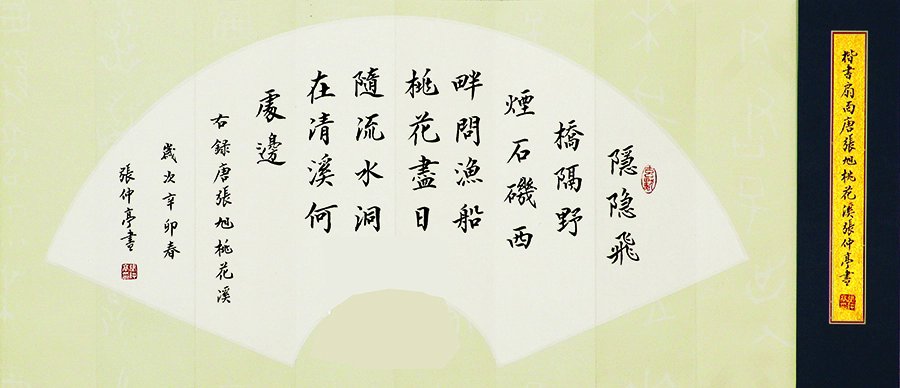 隱隐飛
橋隔野
煙石磯西
畔問漁船
桃花盡日
隨流水洞
在清溪何
處邊
右録唐張旭桃花溪
嵗次辛卯春
張仲亭書
楷书扇面唐張旭桃花溪張仲亭書